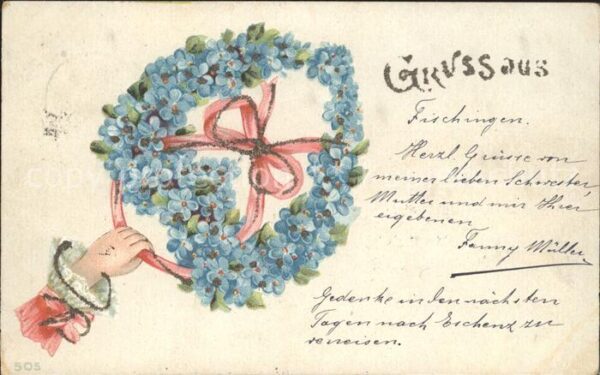 GRUSS aus
Fischingen.
Herzl. Grüsse von
meiner lieben Schwester,
Mutter und mir Ihrer
ergebenen
Fanny Müller
Gedenke in den nächsten
Tagen nach Eschenz zu
verreisen.
505